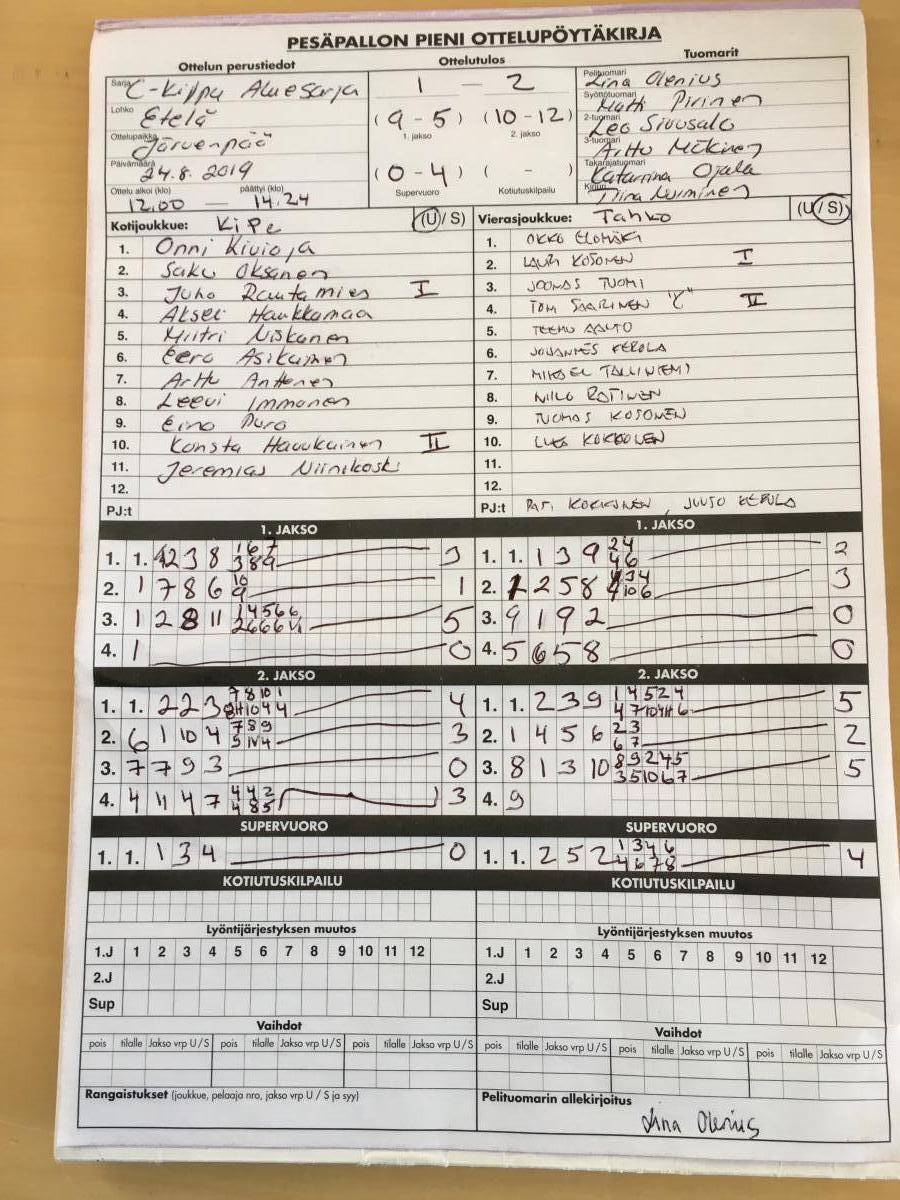 PESÄPALLON PIENI OTTELUPÖYTÄKIRJA
Ottelun perustiedot
Sarja C-Kilpa Aluesarja
Lohko Etelä
Ottelupaikka Järvenpää
Päivämäärä 24.8.2019
Ottelu alkoi (klo) päättyi (klo)
12.00 — 14.24
Ottelutulos
1 — 2
(9-5) (10-12)
1. jakso 2. jakso
(0-4) ( - )
Supervuoro Kotiutuskilpailu
Tuomarit
Pelituomari Lina Olenius
Syöttötuomari Matti Pirinen
2-tuomari Leo Sivusalo
3-tuomari Arttu Mäkinen
Takarajatuomari Katariina Ojala
Kirjuri Tiina Nurminen
Kotijoukkue: Kipe (U/S)
1. Onni Kivioja
2. Saku Oksanen
3. Juho Rautamies I
4. Akseli Haukkamaa
5. Miitri Niskanen
6. Eero Asikainen
7. Arttu Anttonen
8. Leevi Immonen
9. Eino Puro
10. Konsta Haukkainen II
11. Jeremias Niinikoski
12.
PJ:t
Vierasjoukkue: Tahko (U/S)
1. OKKO ELOMÄKI
2. LAURI KOSONEN I
3. JOONAS TUOMI
4. TOMI SAARINEN "C" II
5. TEEMU AALTO
6. JOHANNES KEROLA
7. MIKAEL TALLINIEMI
8. NIILO ROTINEN
9. TUOMAS KOSONEN
10. KOKKONEN
11.
12.
PJ:t PASI KOKKONEN, JUUSO KEROLA
1. JAKSO
1. 1. 4 2 3 8 1 6 7 3 8 9 3
2. 1 7 8 6 10 9 1
3. 1 2 8 11 1 4 5 6 6 2 6 6 6 5
4. 1 0
1. JAKSO
1. 1. 1 3 9 2 4 4 6 2
2. 1 2 5 8 3 4 10 6 3
3. 9 1 9 2 0
4. 5 6 5 8 0
2. JAKSO
1. 1. 2 2 3 7 8 10 1 8 11 10 4 4 4
2. 6 1 10 4 7 8 9 5 11 4 3
3. 7 7 9 3 0
4. 4 11 4 7 4 4 2 4 8 5 3
2. JAKSO
1. 1. 2 3 9 1 4 5 2 4 4 7 10 4 11 6 5
2. 1 4 5 6 2 3 6 7 2
3. 8 1 3 10 8 9 2 4 5 3 5 10 6 7 5
4. 9
SUPERVUORO
1. 1. 1 3 4 0
SUPERVUORO
1. 1. 2 5 2 1 3 4 6 4 6 7 8 4
KOTIUTUSKILPAILU
KOTIUTUSKILPAILU
Lyöntijärjestyksen muutos
1.J 1 2 3 4 5 6 7 8 9 10 11 12
2.J
Sup
Lyöntijärjestyksen muutos
1.J 1 2 3 4 5 6 7 8 9 10 11 12
2.J
Sup
Vaihdot
pois tilalle Jakso vrp U/S pois tilalle Jakso vrp U/S pois tilalle Jakso vrp U/S
Vaihdot
pois tilalle Jakso vrp U/S pois tilalle Jakso vrp U/S pois tilalle Jakso vrp U/S
Rangaistukset (joukkue, pelaaja nro, jakso vrp U / S ja syy)
Pelituomarin allekirjoitus
Lina Olenius